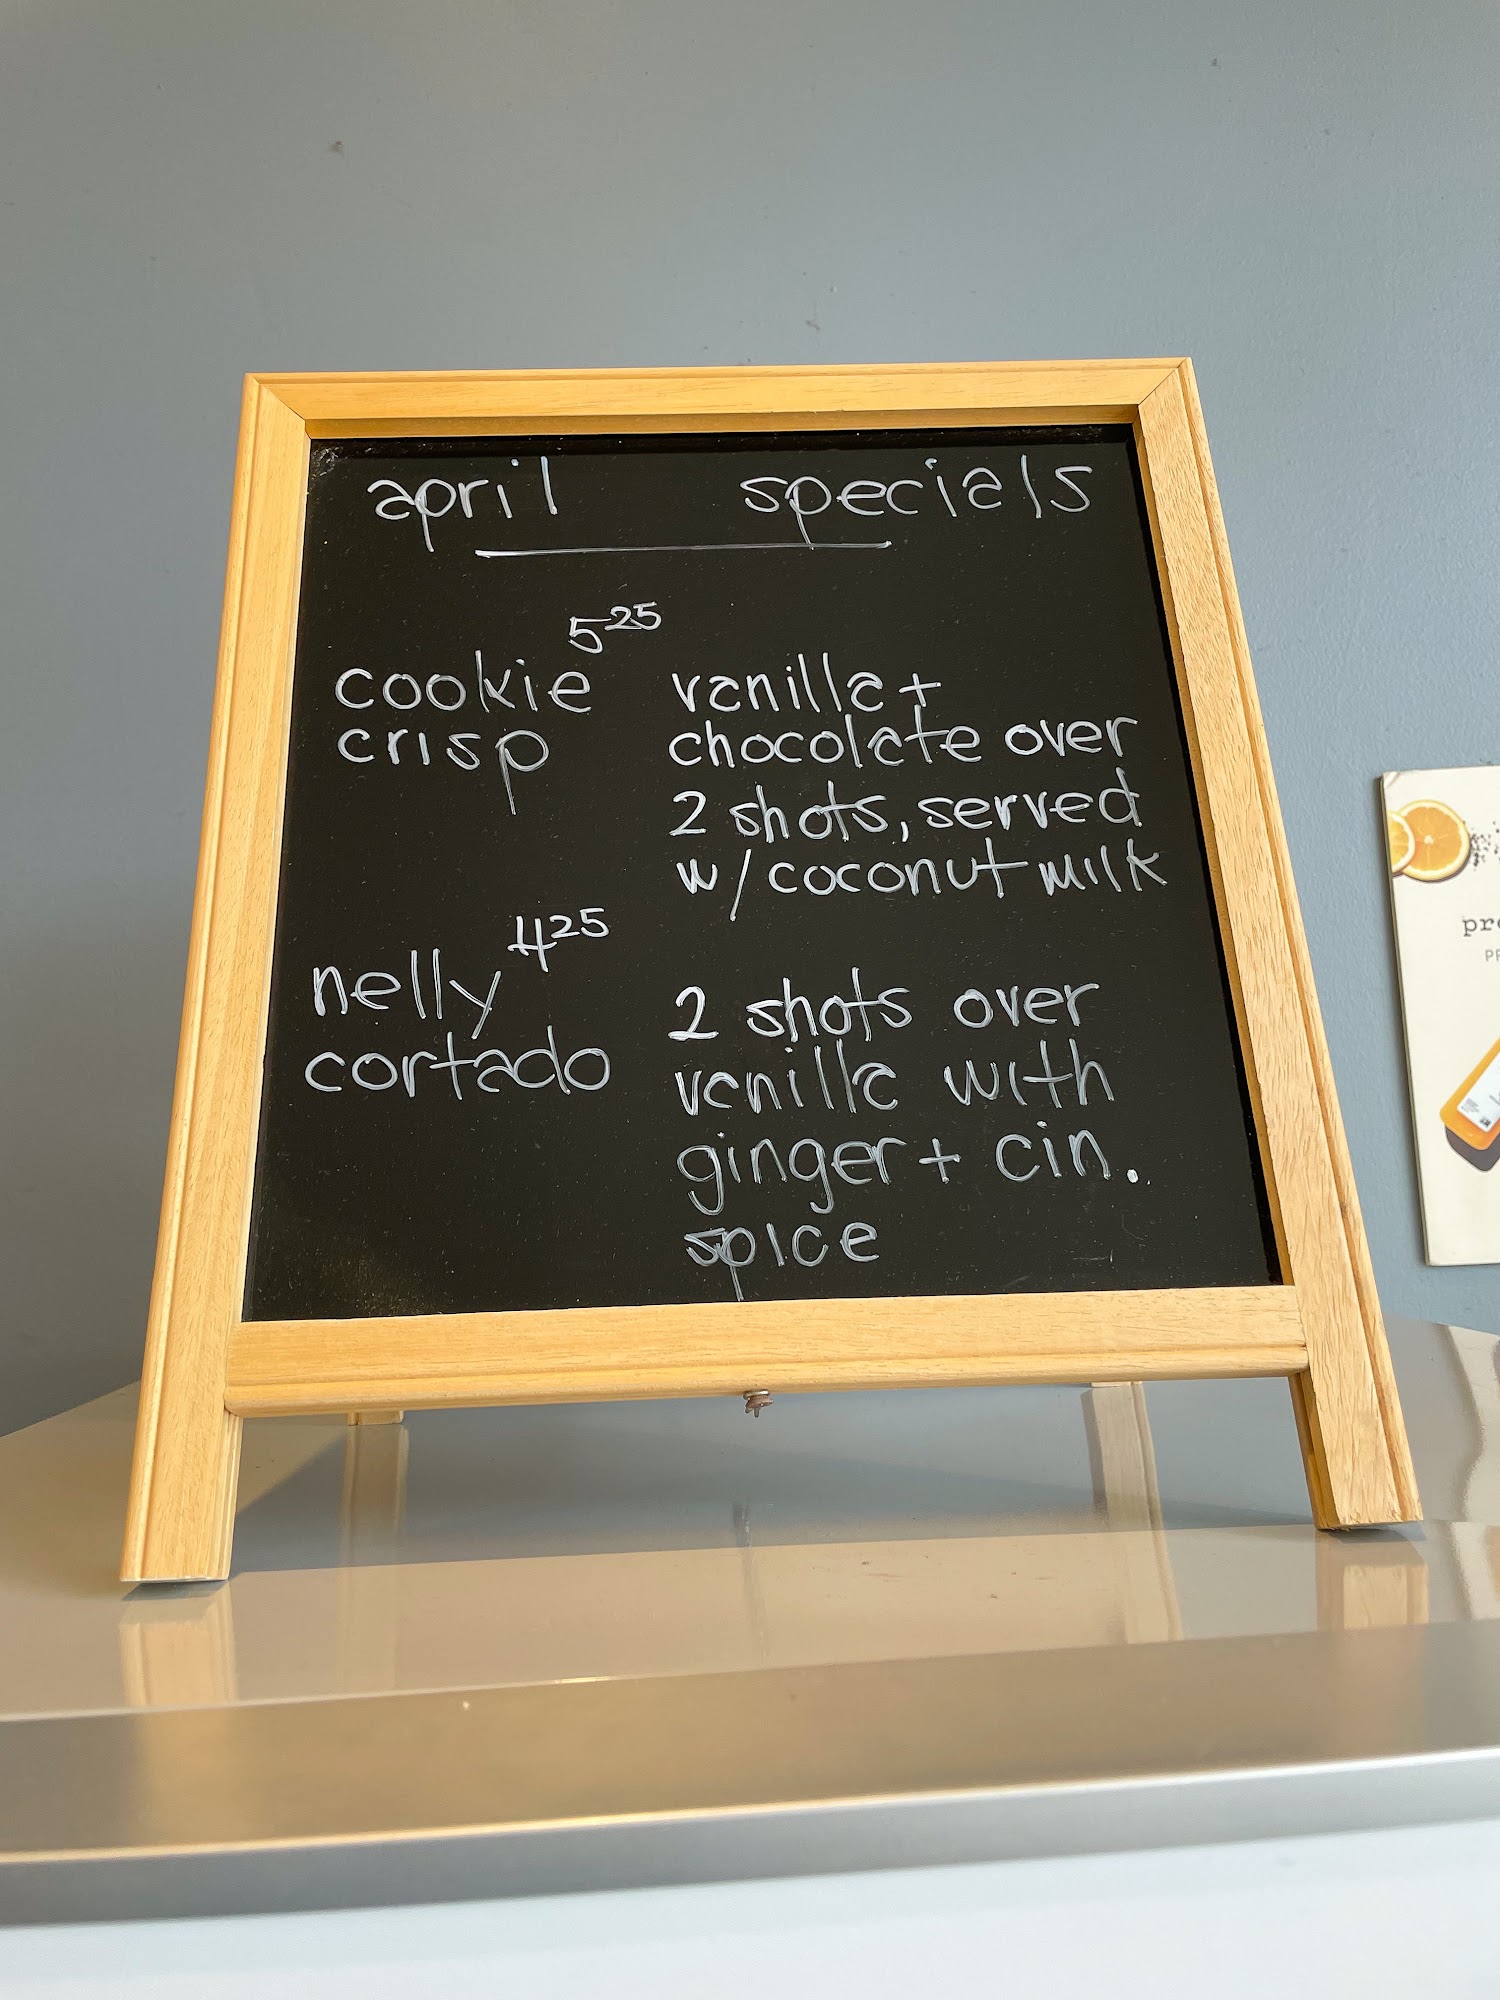 april specials
5 25
cookie
crisp
vanilla +
chocolate over
2 shots, served
w/coconut milk
4 25
nelly
cortado
2 shots over
vanilla with
ginger + cin.
spice